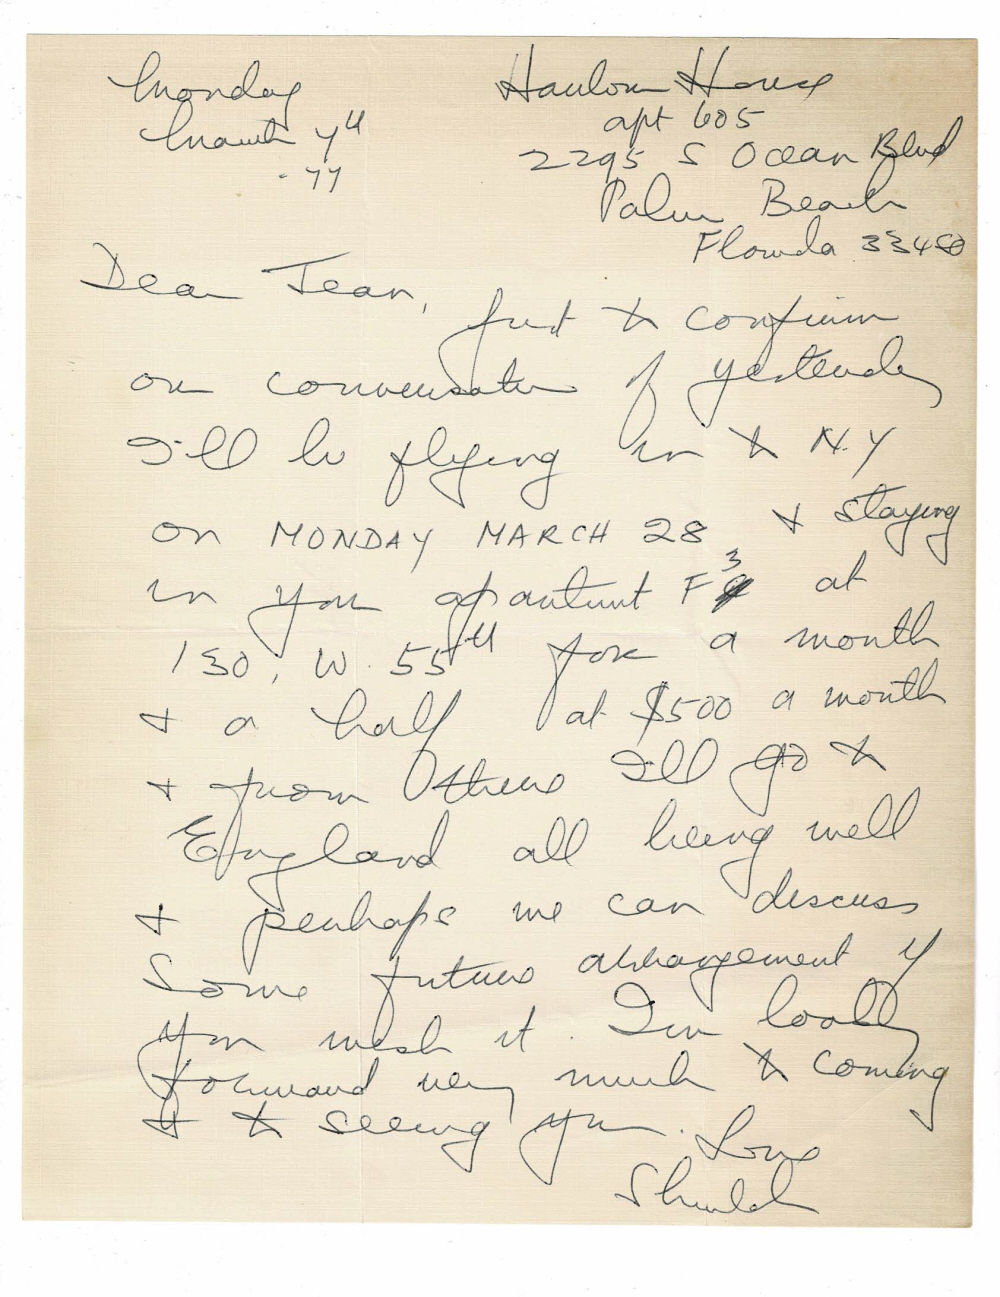 Monday
March 7th
-77
House
apt 605
2295 S Ocean Blvd
Palm Beach
Florida 33480
Dear Jean,
Just to confirm
our conversation of yesterday
I'll be flying in to N.Y
on MONDAY MARCH 28, & staying
in your apartment F3 at
130, W. 55th for a month
& a half at $500 a month
& from there I'll go to
England all being well
& perhaps we can discuss
some future arrangement if
you wish it. I'm looking
forward very much to coming
& to seeing you. Love